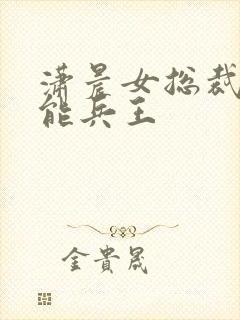 潇晨女总裁
能兵王
金贵晟